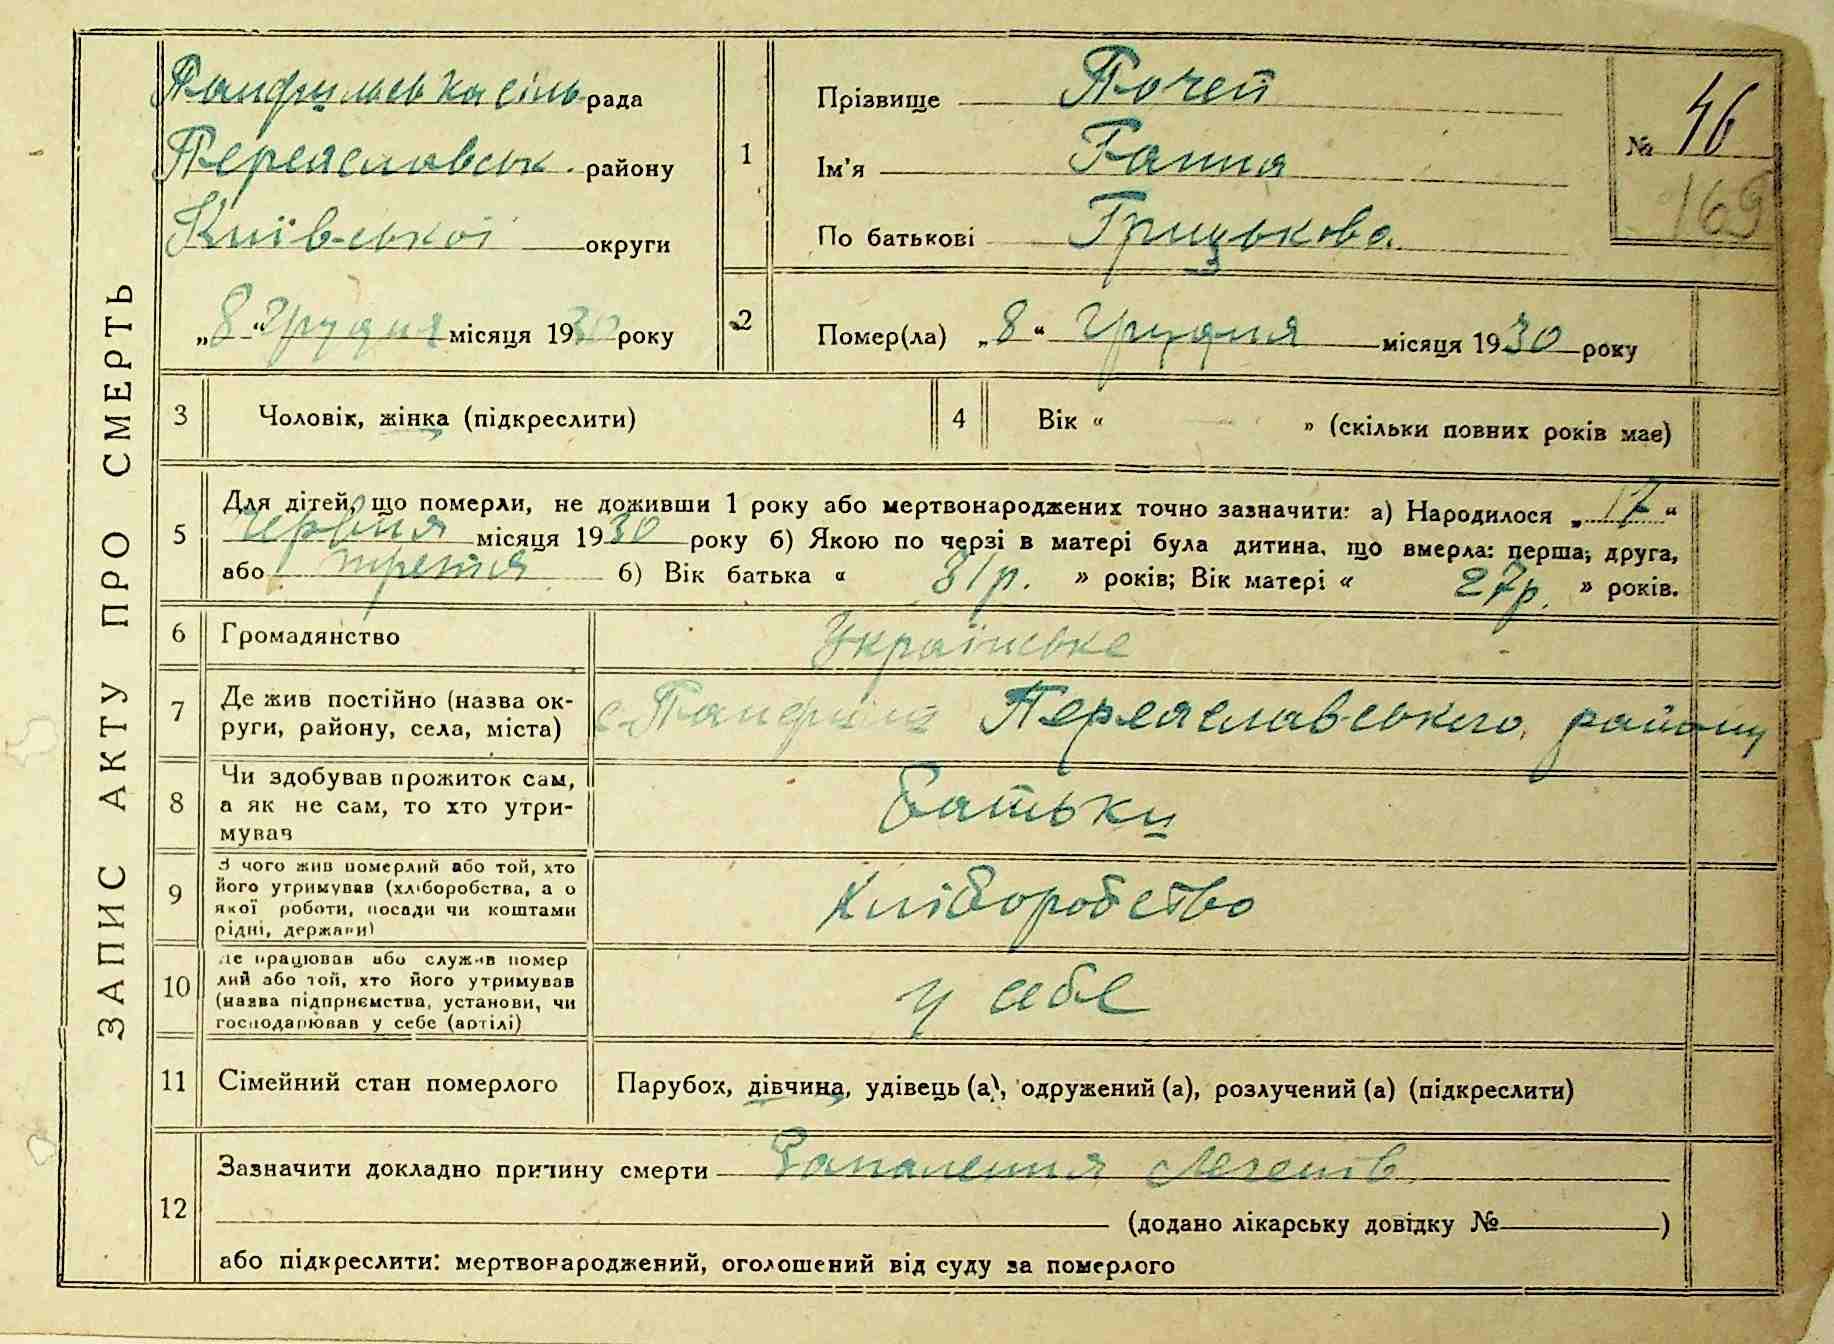 ЗАПИС АКТУ ПРО СМЕРТЬ
Панфильська сіль рада
Переяславськ. району
Київської округи
„8“ грудня місяця 1930 року
1
Прізвище Почеп
Ім'я Ганна
По батькові Грицькова.
№ 46
169
2
Помер(ла) „8“ грудня місяця 1930 року
3 Чоловік, жінка (підкреслити)
4 Вік « » (скільки повних років має)
5
Для дітей, що померли, не доживши 1 року або мертвонароджених точно зазначити: а) Народилося „17“
червня місяця 1930 року б) Якою по черзі в матері була дитина, що вмерла: перша, друга,
або третя б) Вік батька « 31р. » років; Вік матері « 27р. » років.
6 Громадянство Українське
7 Де жив постійно (назва ок-
руги, району, села, міста) с. Панфили Переяславського району
8 Чи здобував прожиток сам,
а як не сам, то хто утри-
мував Батьки
9 З чого жив померлий або той, хто
його утримував (хліборобства, а о
якої роботи, посади чи коштами
рідні, держави) Хліборобство
10 Де працював або служив помер
лий або той, хто його утримував
(назва підприємства, установи, чи
господарював у себе (артілі) у себе
11 Сімейний стан померлого Парубок, дівчина, удівець (а), одружений (а), розлучений (а) (підкреслити)
12
Зазначити докладно причину смерти Запалення легенів
(додано лікарську довідку № )
або підкреслити: мертвонароджений, оголошений від суду за померлого